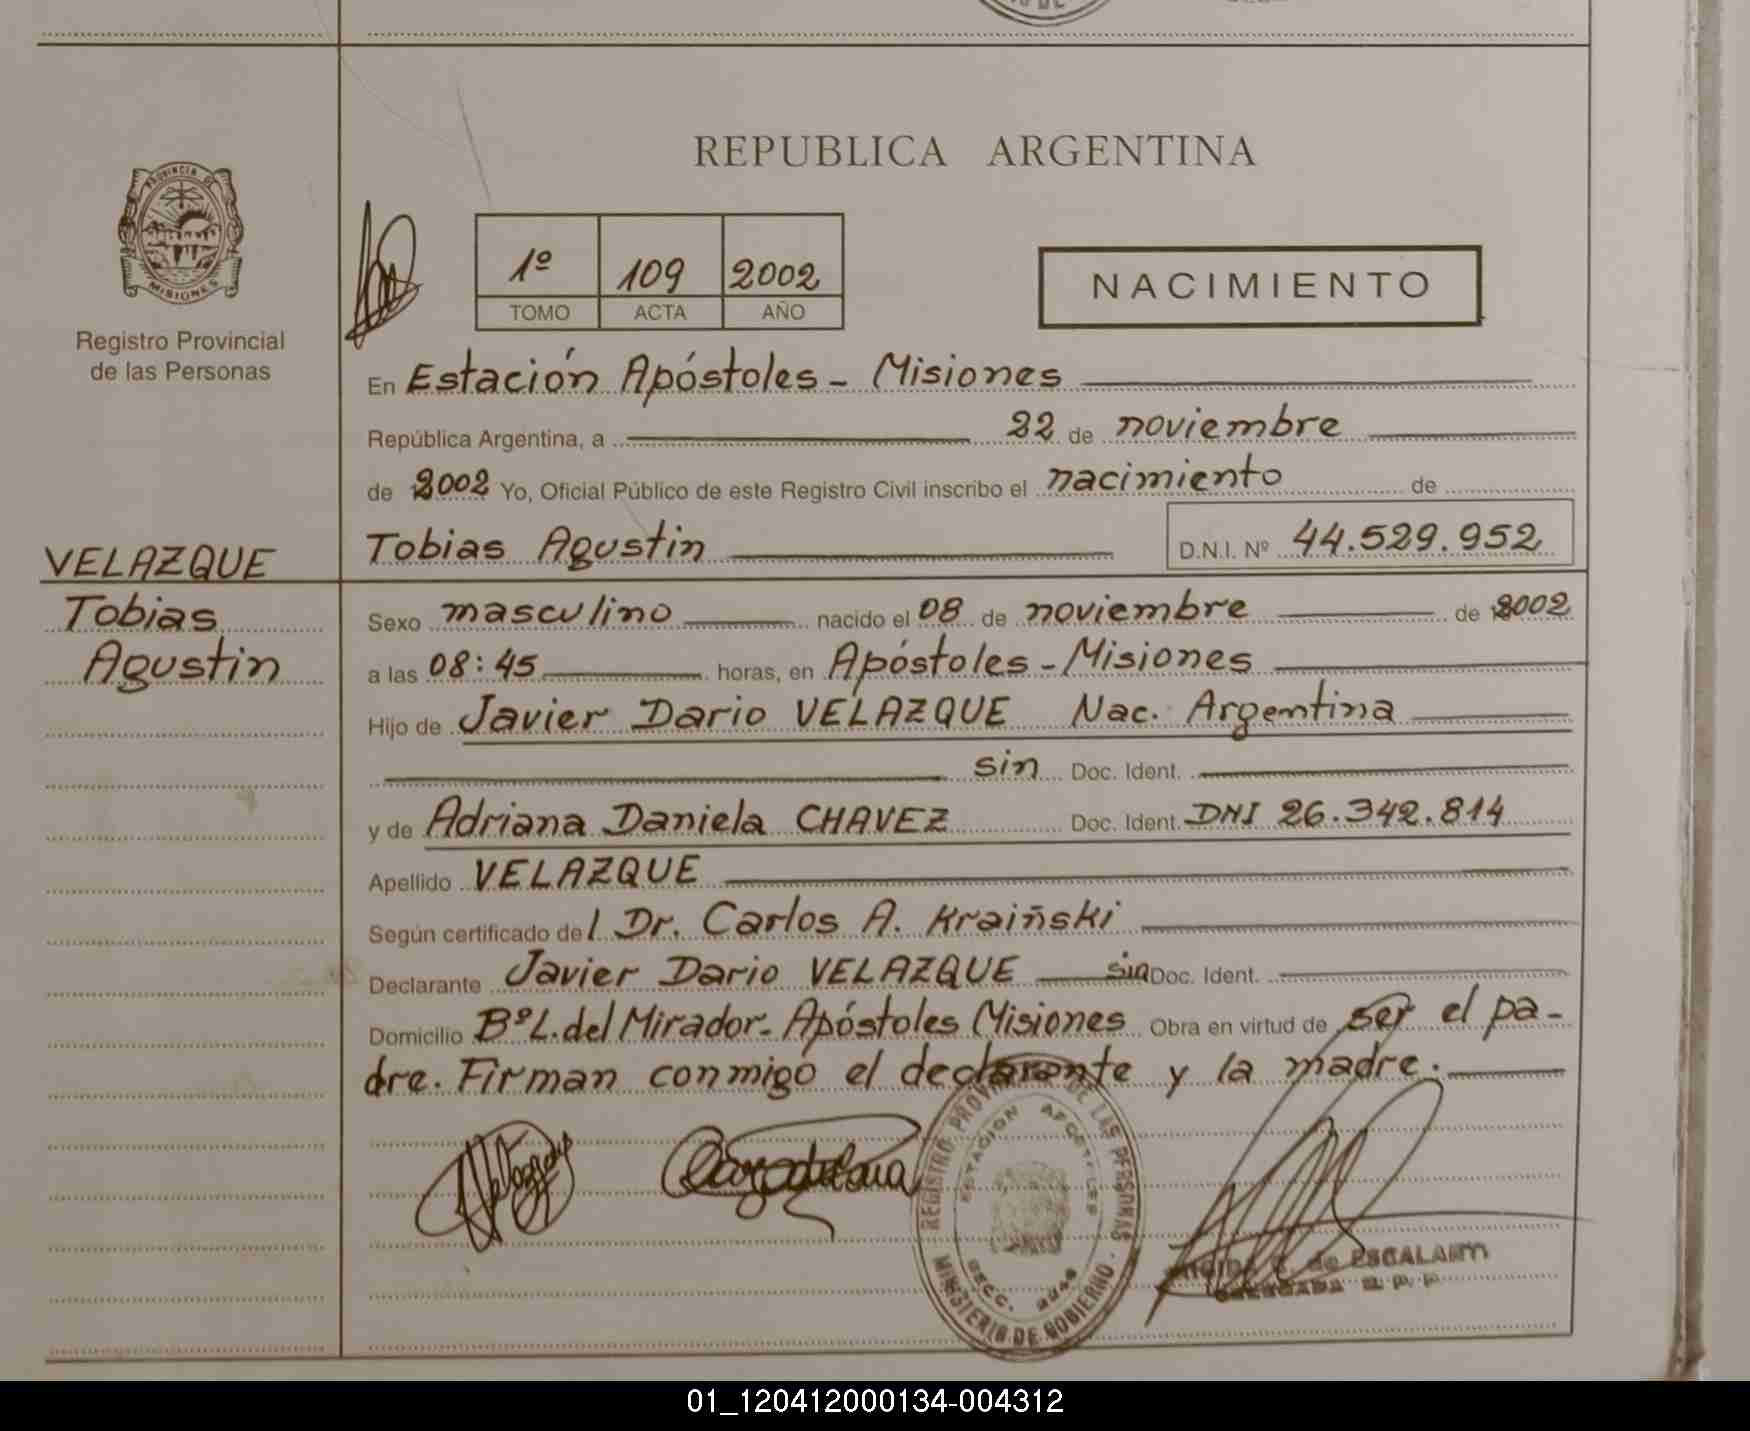 REPUBLICA ARGENTINA
PROVINCIA DE
MISIONES
Registro Provincial
de las Personas
1º 109 2002
TOMO ACTA AÑO
NACIMIENTO
En Estación Apóstoles - Misiones
República Argentina, a 22 de noviembre
de 2002 Yo, Oficial Público de este Registro Civil inscribo el nacimiento de
Tobias Agustin D.N.I. Nº 44.529.952
VELAZQUE
Tobias
Agustin
Sexo masculino nacido el 08 de noviembre de 2002
a las 08:45 horas, en Apóstoles - Misiones
Hijo de Javier Dario VELAZQUE Nac. Argentina
sin Doc. Ident.
y de Adriana Daniela CHAVEZ Doc. Ident. DNI 26.342.814
Apellido VELAZQUE
Según certificado del Dr. Carlos A. Kraiñski
Declarante Javier Dario VELAZQUE sin Doc. Ident.
Domicilio Bº L. del Mirador - Apóstoles Misiones Obra en virtud de ser el pa-
dre. Firman conmigo el declarante y la madre.
REGISTRO PROVINCIAL DE LAS PERSONAS
ESTACION APOSTOLES
MINISTERIO DE GOBIERNO
de ESCALANTE
DELEGADA R.P.P.
01_120412000134-004312